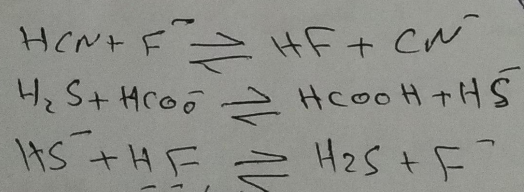 HCN + F⁻ ⇌ HF + CN⁻
H₂S + HCOO⁻ ⇌ HCOOH + HS⁻
HS⁻ + HF ⇌ H2S + F⁻